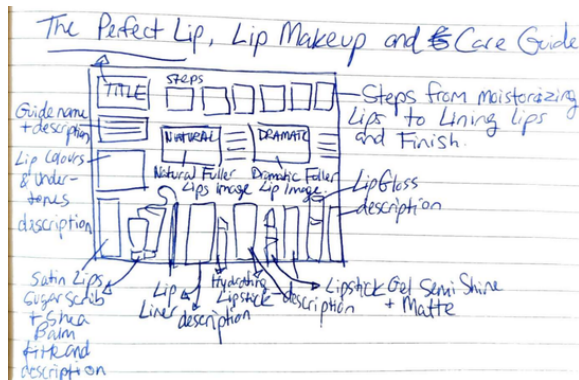 The Perfect Lip, Lip Makeup and Care Guide
TITLE
Steps
Steps from moistorizing
Lips to Lining lips
and Finish.
Guide name
+ description
NATURAL
DRAMATIC
Lip Colours
& Under-
tones
description
Natural Fuller
Lips Image
Dramatic Fuller
Lip Image
Lip Gloss
description
Satin Lips
Sugar Scrib
+ Shea
Balm
title and
description
Lip
Liner
description
Hydrating
Lipstick
description
Lipstick Gel Semi Shine
+ Matte